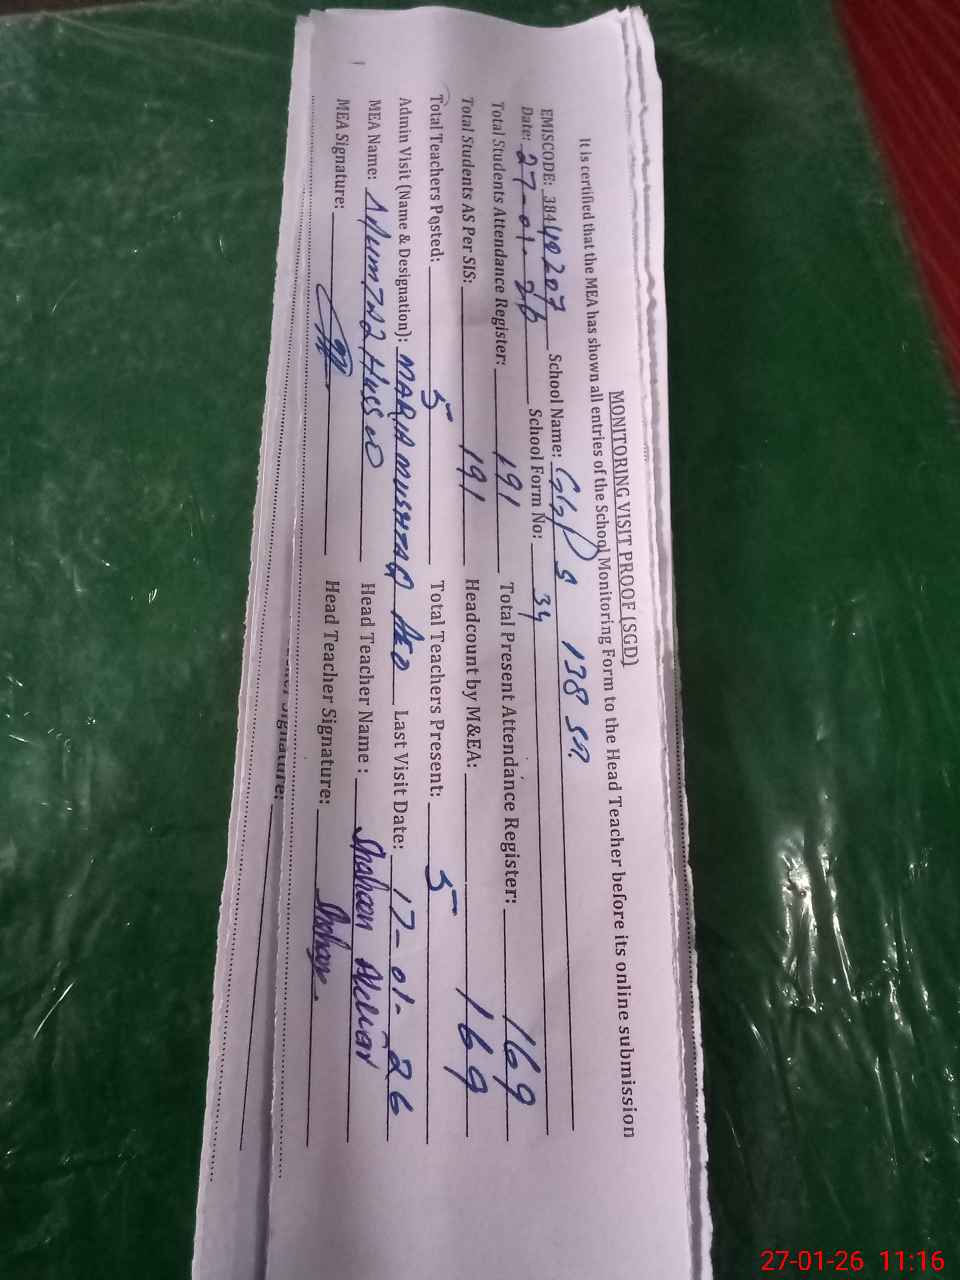 MONITORING VISIT PROOF (SGD)
It is certified that the MEA has shown all entries of the School Monitoring Form to the Head Teacher before its online submission
EMISCODE: 38440207 School Name: GGPS 138 SB
Date: 27-01-26 School Form No: 34
Total Students Attendance Register: 191 Total Present Attendance Register: 169
Total Students AS Per SIS: 191 Headcount by M&EA: 169
Total Teachers Posted: 5 Total Teachers Present: 5
Admin Visit (Name & Designation): MARIA MUSHTAQ AEO Last Visit Date: 17-01-26
MEA Name: Head Teacher Name : Shaheen Akhtar
MEA Signature: Head Teacher Signature: Shaheen.
Signature:
27-01-26 11:16